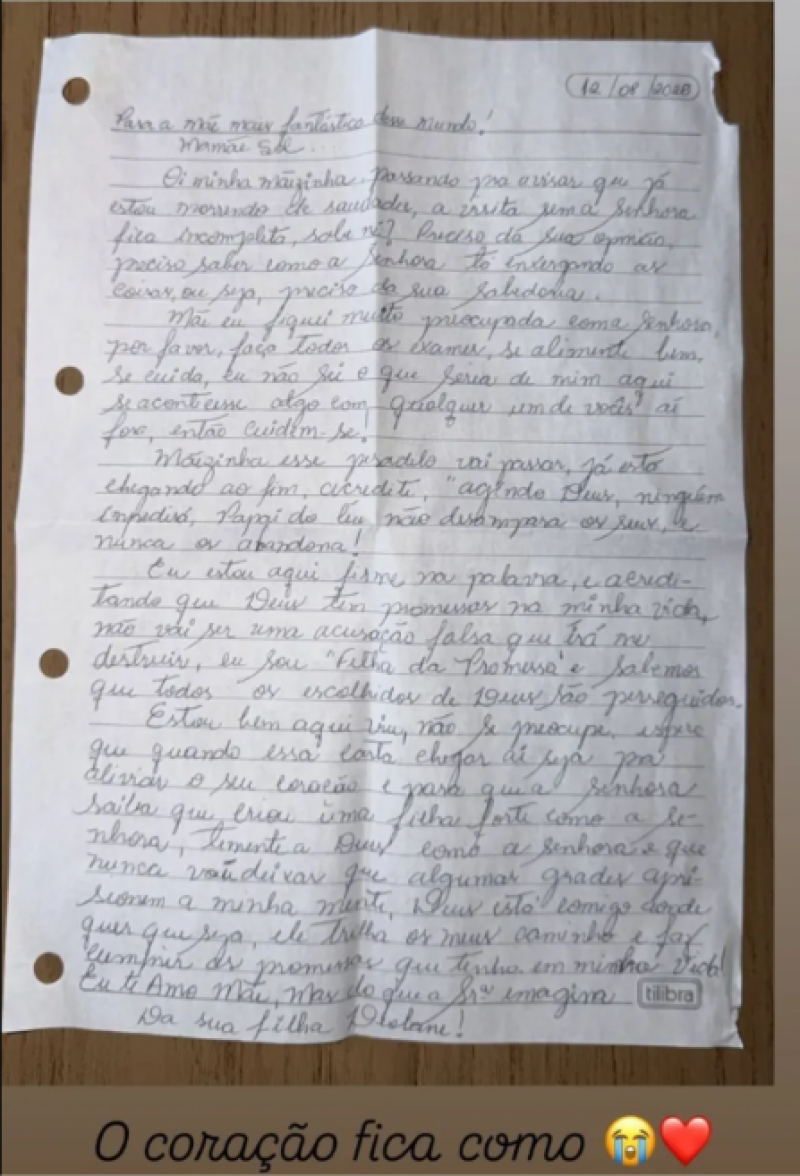 12/08/2026
Para a mãe mais fantástica desse mundo!
Mamãe Sol...
Oi minha mãizinha, passando pra avisar que já
estou morrendo de saudades, a visita sem a Senhora
fica incompleta, sabe né? Preciso da sua opinião,
preciso saber como a Senhora tá enxergando as
coisas, ou seja, preciso da sua sabedoria.
Mãe eu fiquei muito preocupada com a Senhora,
por favor, faça todos os exames, se alimente bem,
se cuida, eu não sei o que seria de mim aqui
se acontecesse algo com qualquer um de vocês aí
fora, então cuidem-se!
Mãizinha esse pesadelo vai passar, já está
chegando ao fim, acredite, "agindo Deus, ninguém
impedirá, Papai do Céu não desampara os seus, e
nunca os abandona!
Eu estou aqui firme na palavra, e acredi-
tando que Deus tem promessas na minha vida,
não vai ser uma acusação falsa que irá me
destruir, eu sou "Filha da Promessa" e sabemos
que todos os escolhidos de Deus são perseguidos.
Estou bem aqui viu, não se preocupe, espero
que quando essa carta chegar aí seja pra
aliviar o seu coração e para que a senhora
saiba que criou uma filha forte como a se-
nhora, temente a Deus como a senhora e que
nunca vai deixar que algumas grades apri-
sionem a minha mente, Deus está comigo aonde
quer que seja, ele trilha os meus caminho e faz
cumprir as promessas que tenho em minha vida!
Eu te Amo Mãe, mas do que a Srª imagina
tilibra
Da sua filha Deolane!
O coração fica como 😭❤️